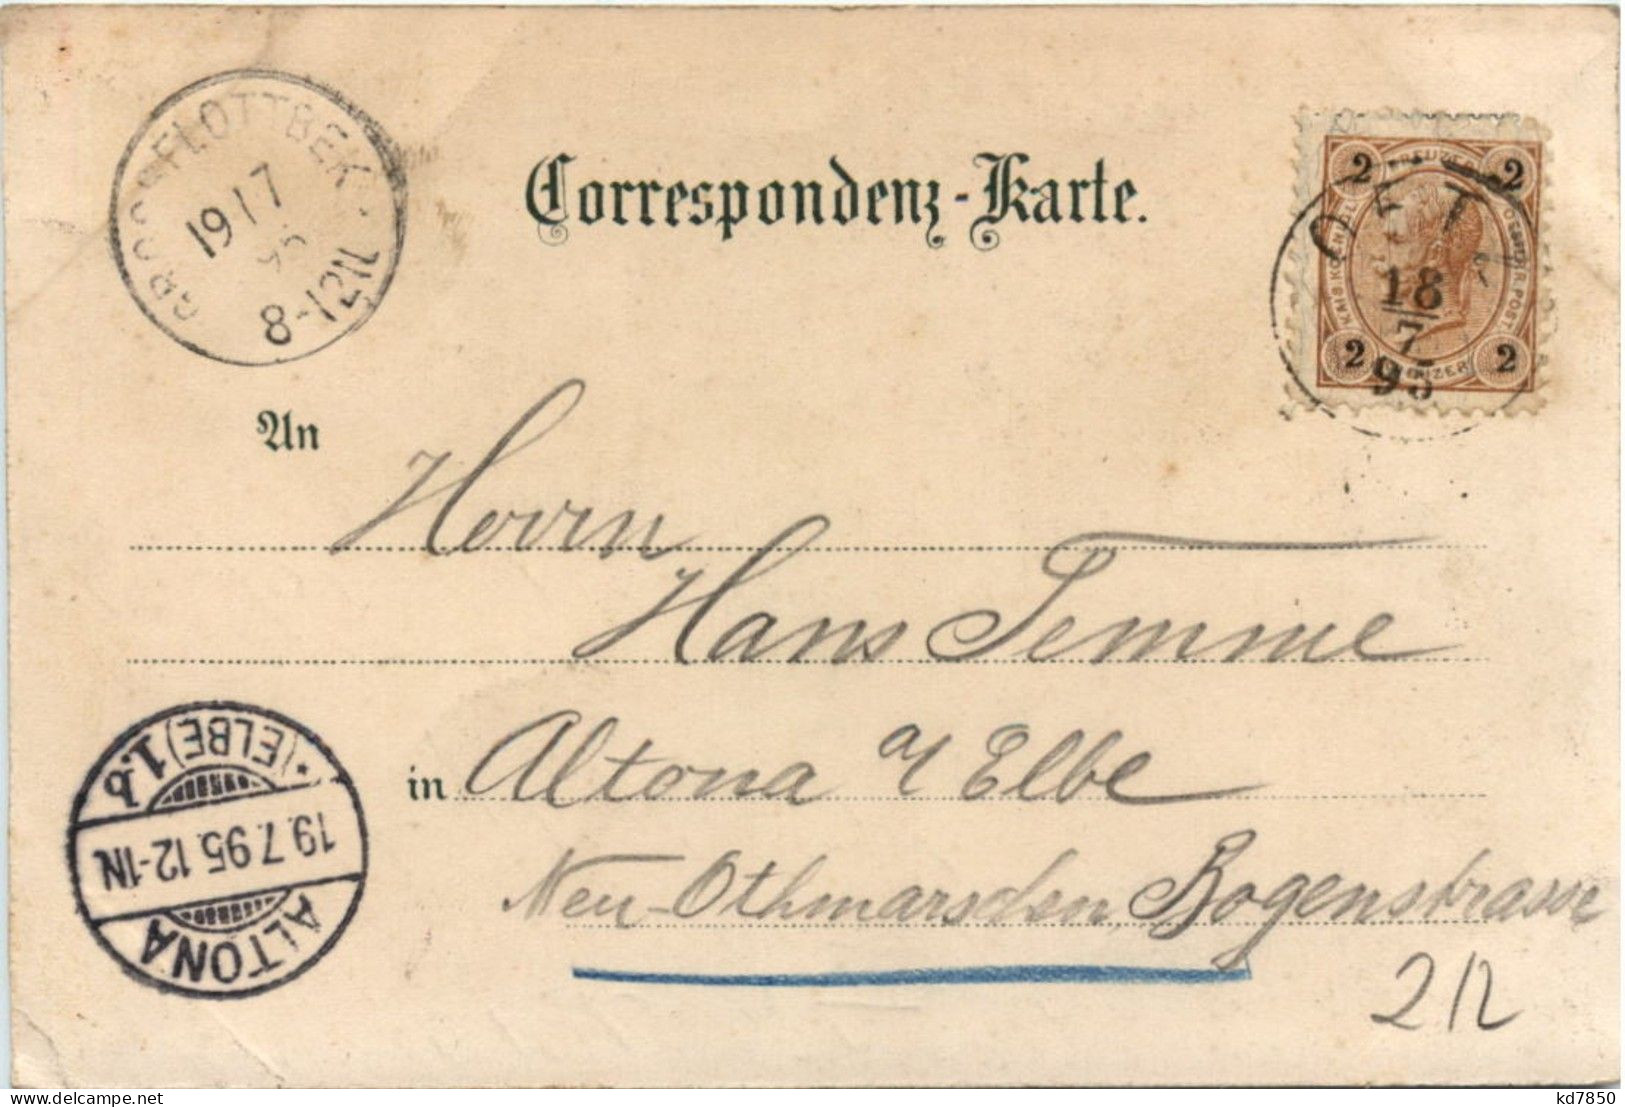 GROSS FLOTTBEK
19/7
95
8-12N
Correspondenz-Karte.
2 KREUZER 2
KAIS. KOENIGL. OESTERR. POST
18
7
95
2 KREUZER 2
An
Herrn
Hans Temme
in Altona a/Elbe
Neu-Othmarschen, Bogenstrasse
2 1/2
ALTONA
19.7.95.12-1N
*(ELBE) 1.b
kd7850